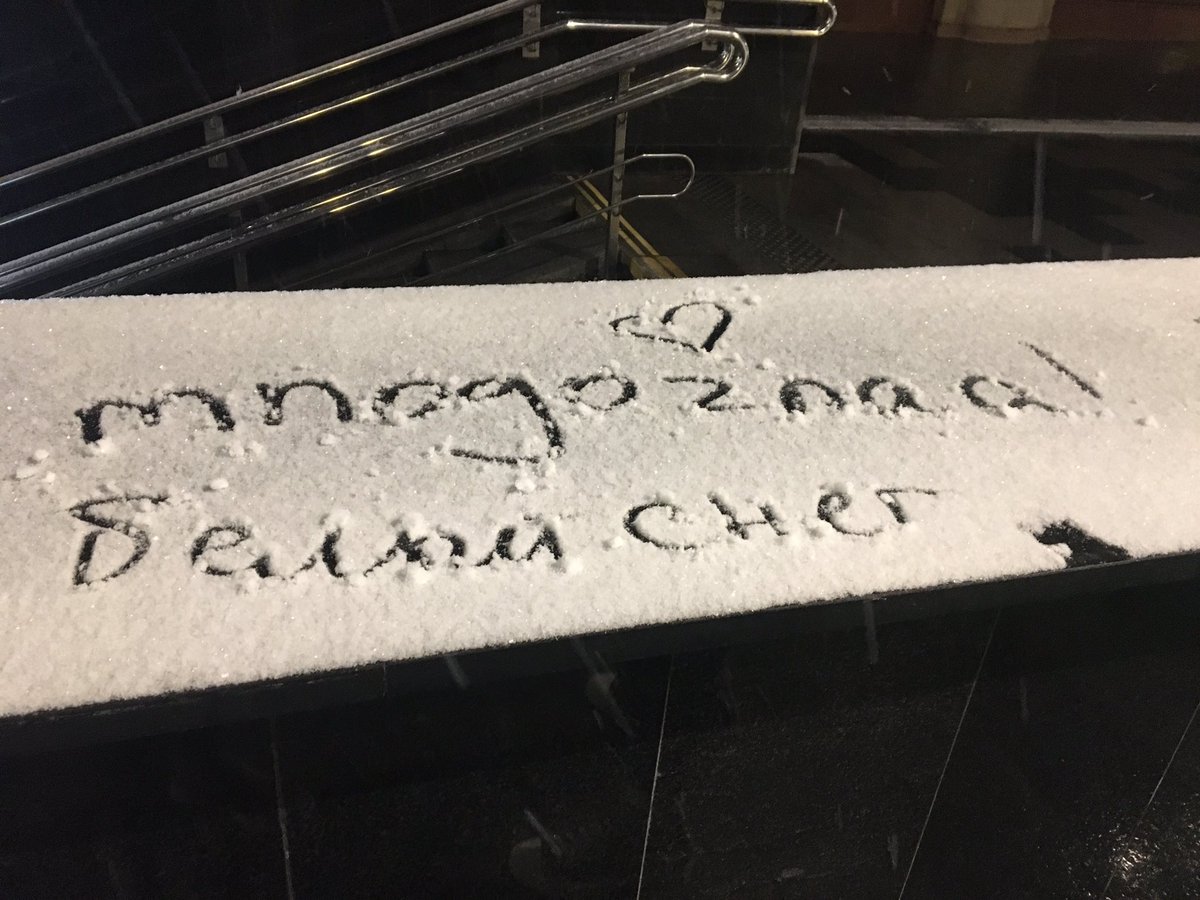 mnogoznaal
белый снег